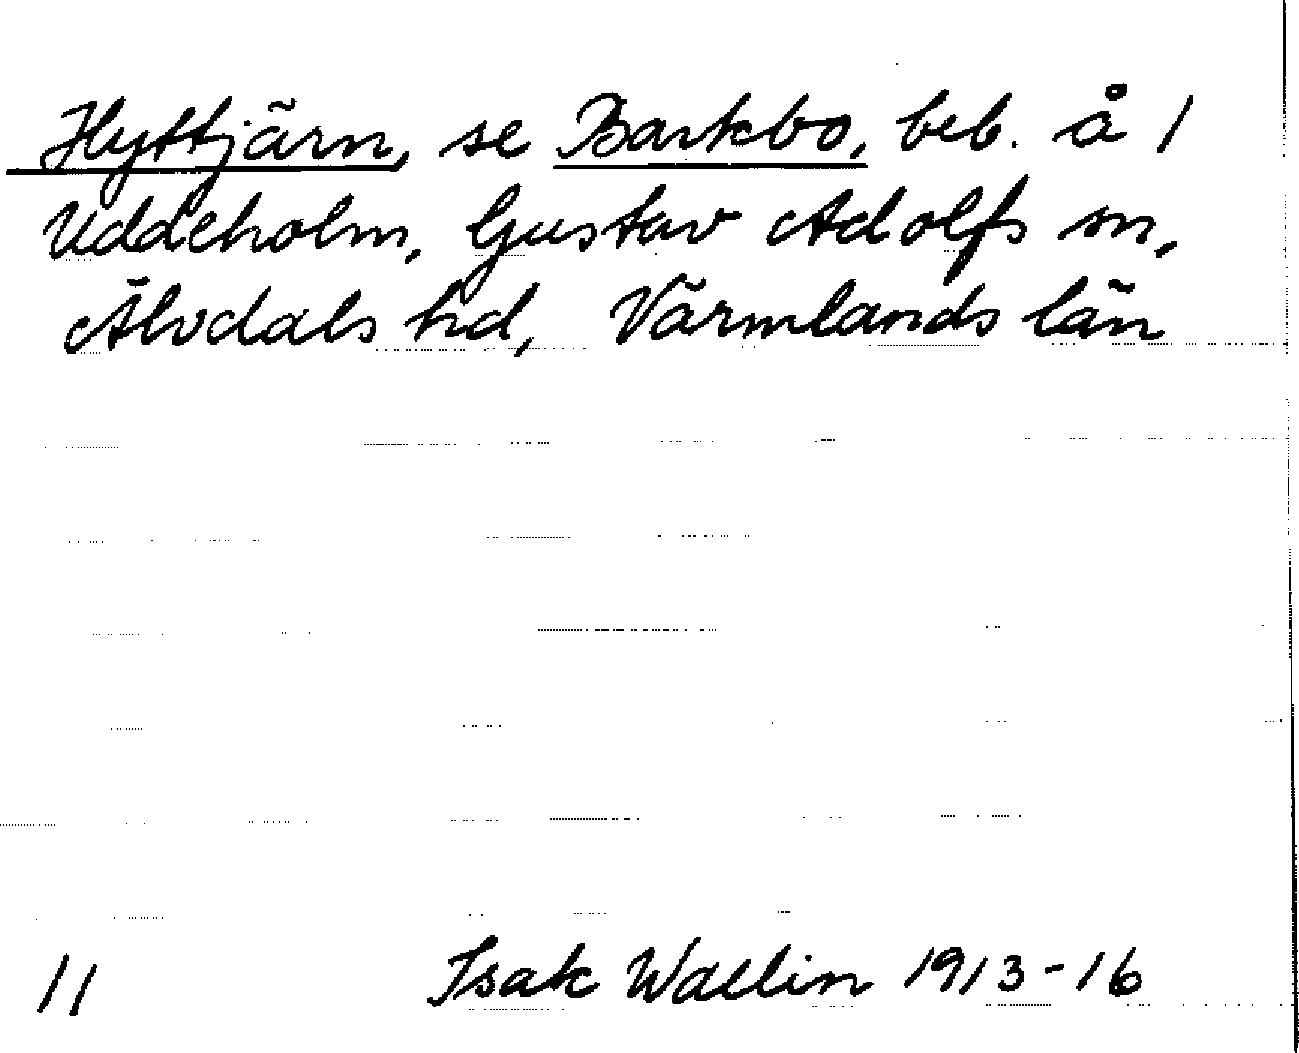 Hyttjärn, se Barkbo, beb. å 1
Uddeholm, Gustav Adolfs sn,
Älvdals hd, Värmlands län
11 Isak Wallin 1913-16